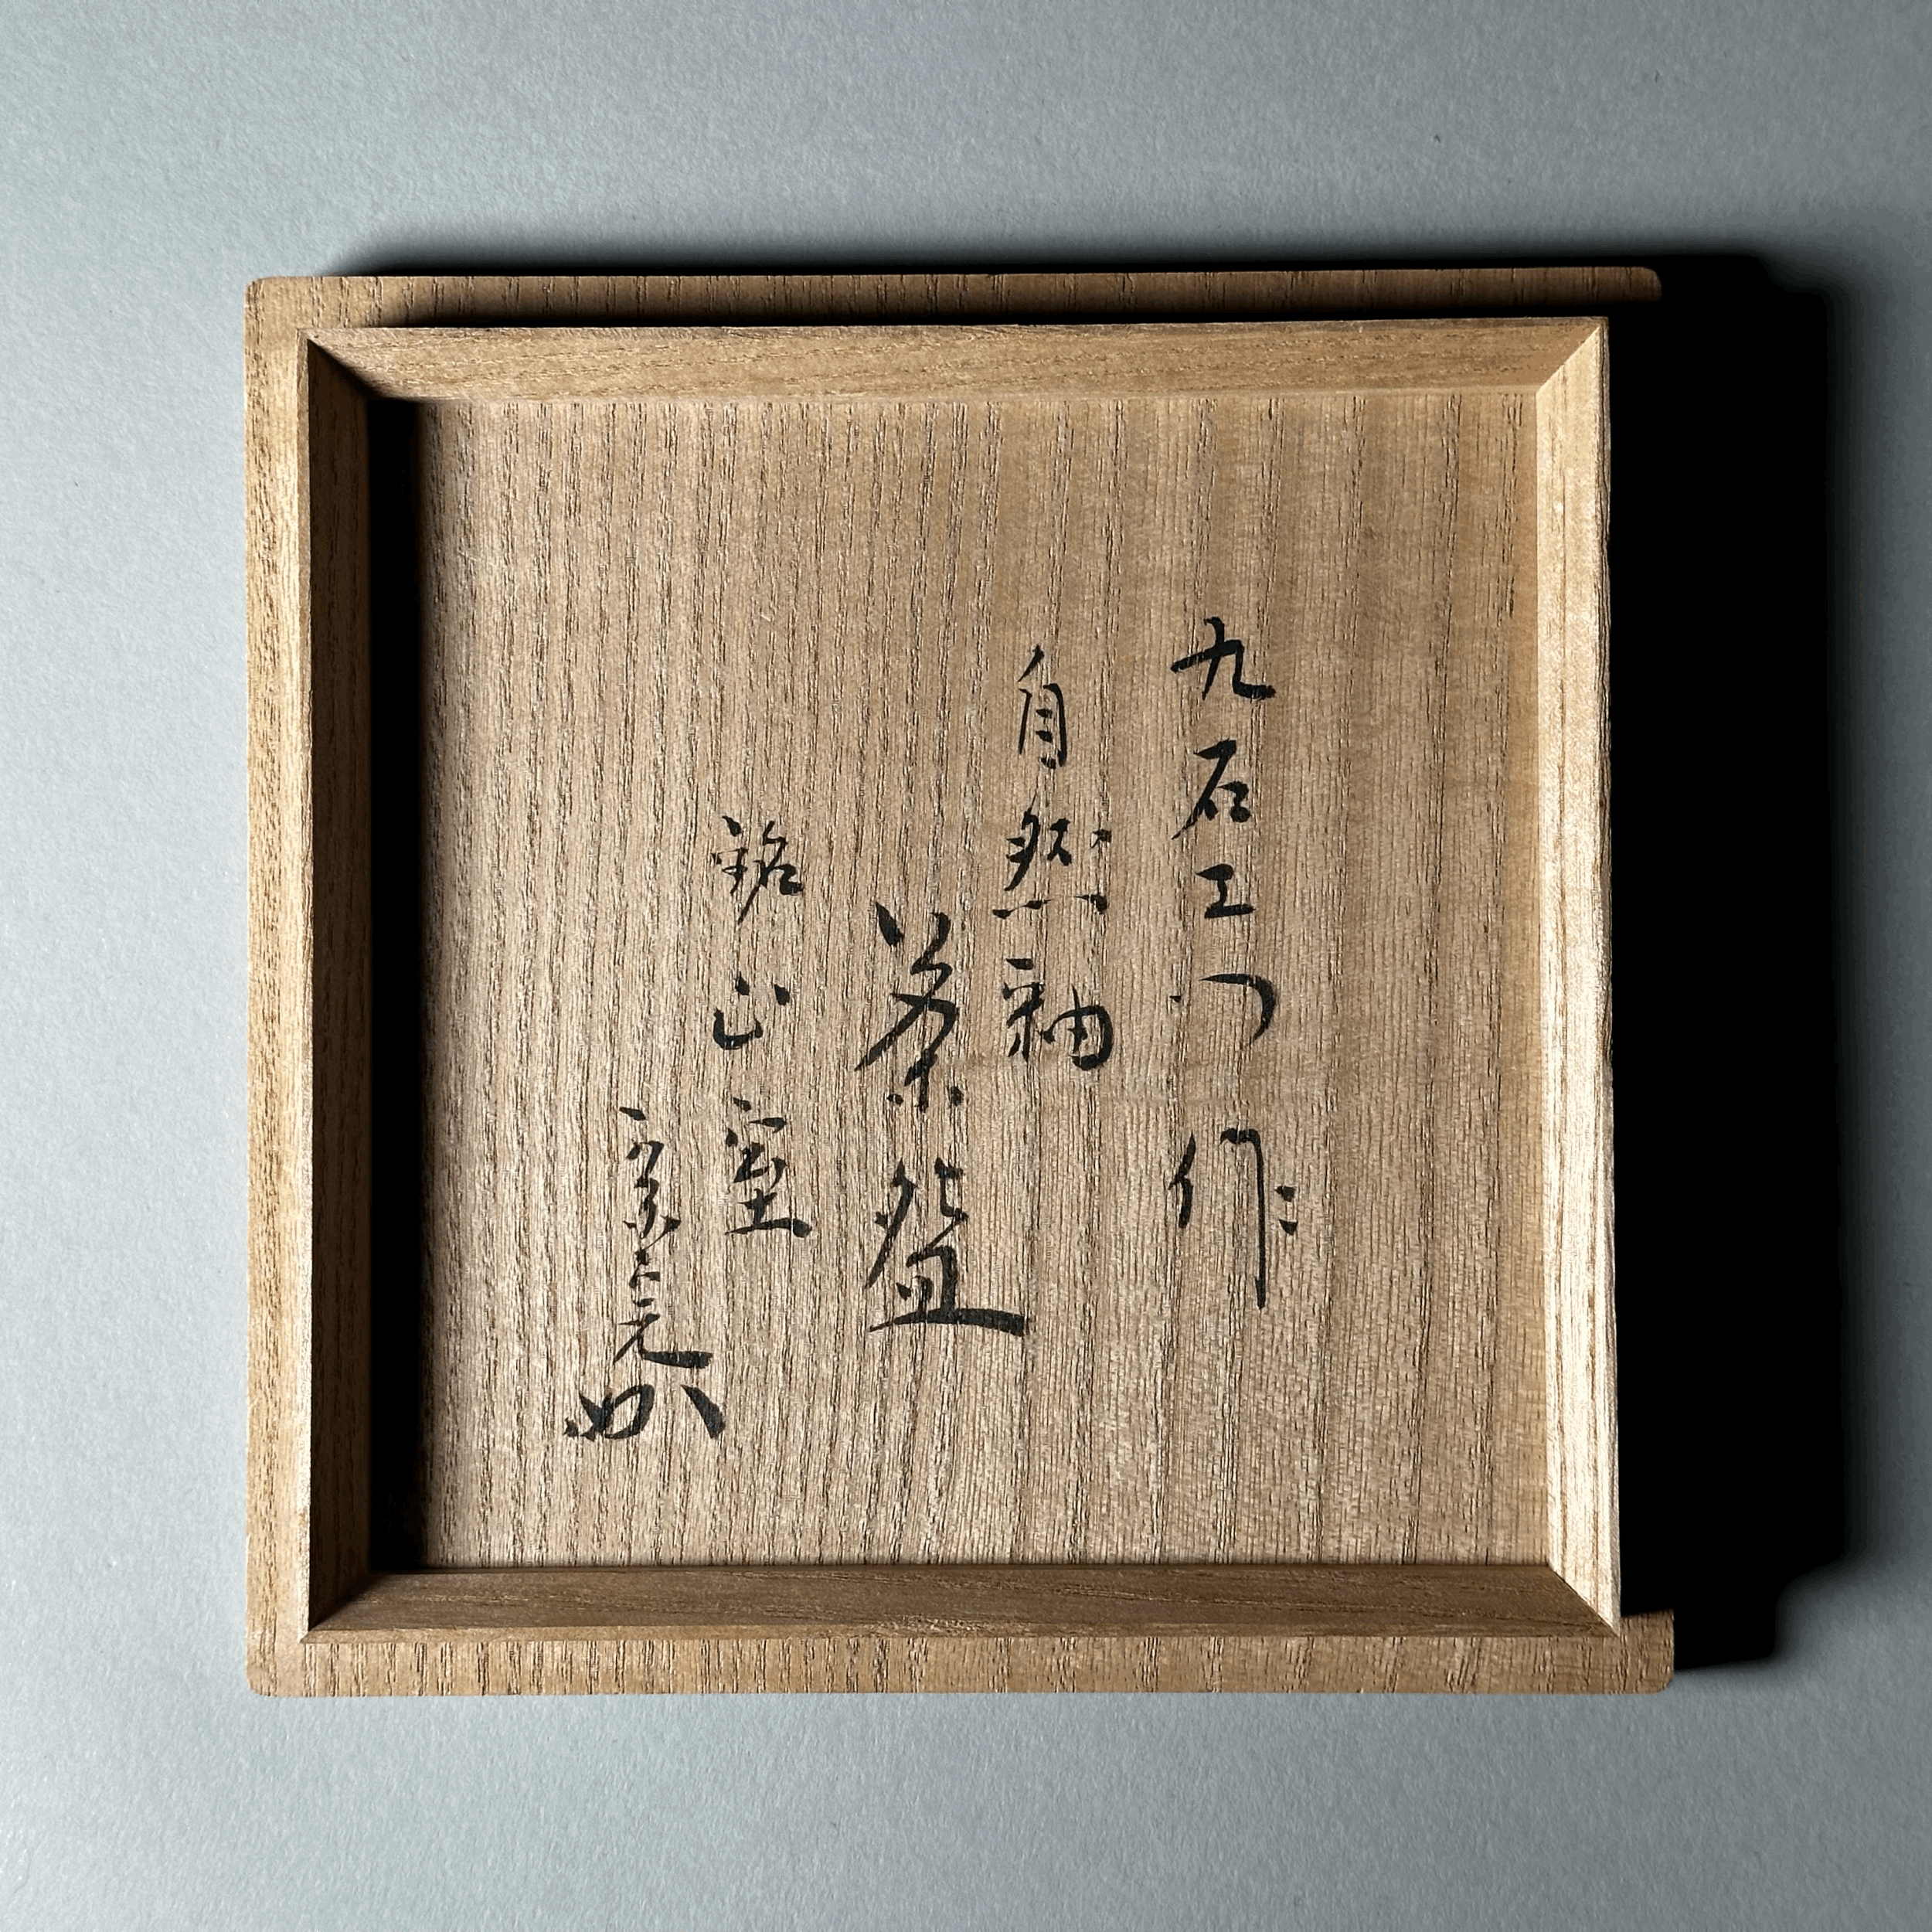 九右エ門作
自然釉
茶盌
銘 山室